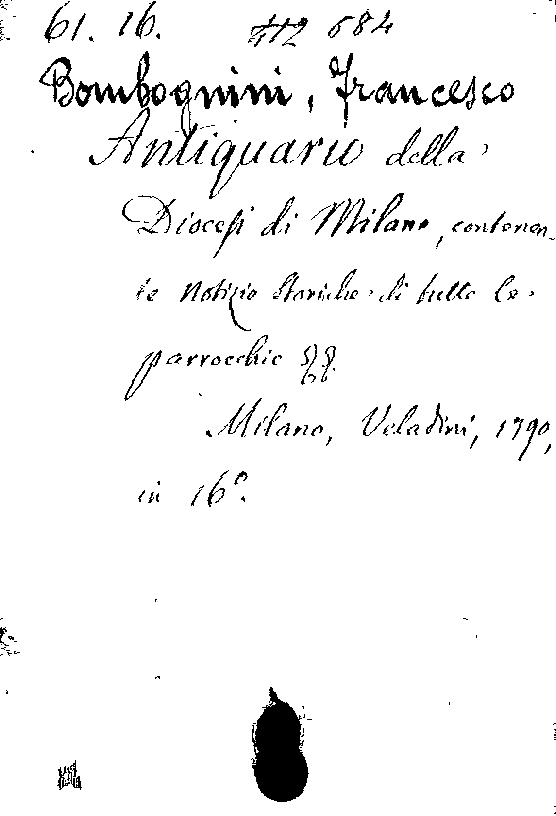 61. 16. 112 684
Bombognini, Francesco
Antiquario della
Diocesi di Milano, contenen-
te Notizie Storiche di tutte le
parrocchie
Milano, Veladini, 1790,
in 16º.